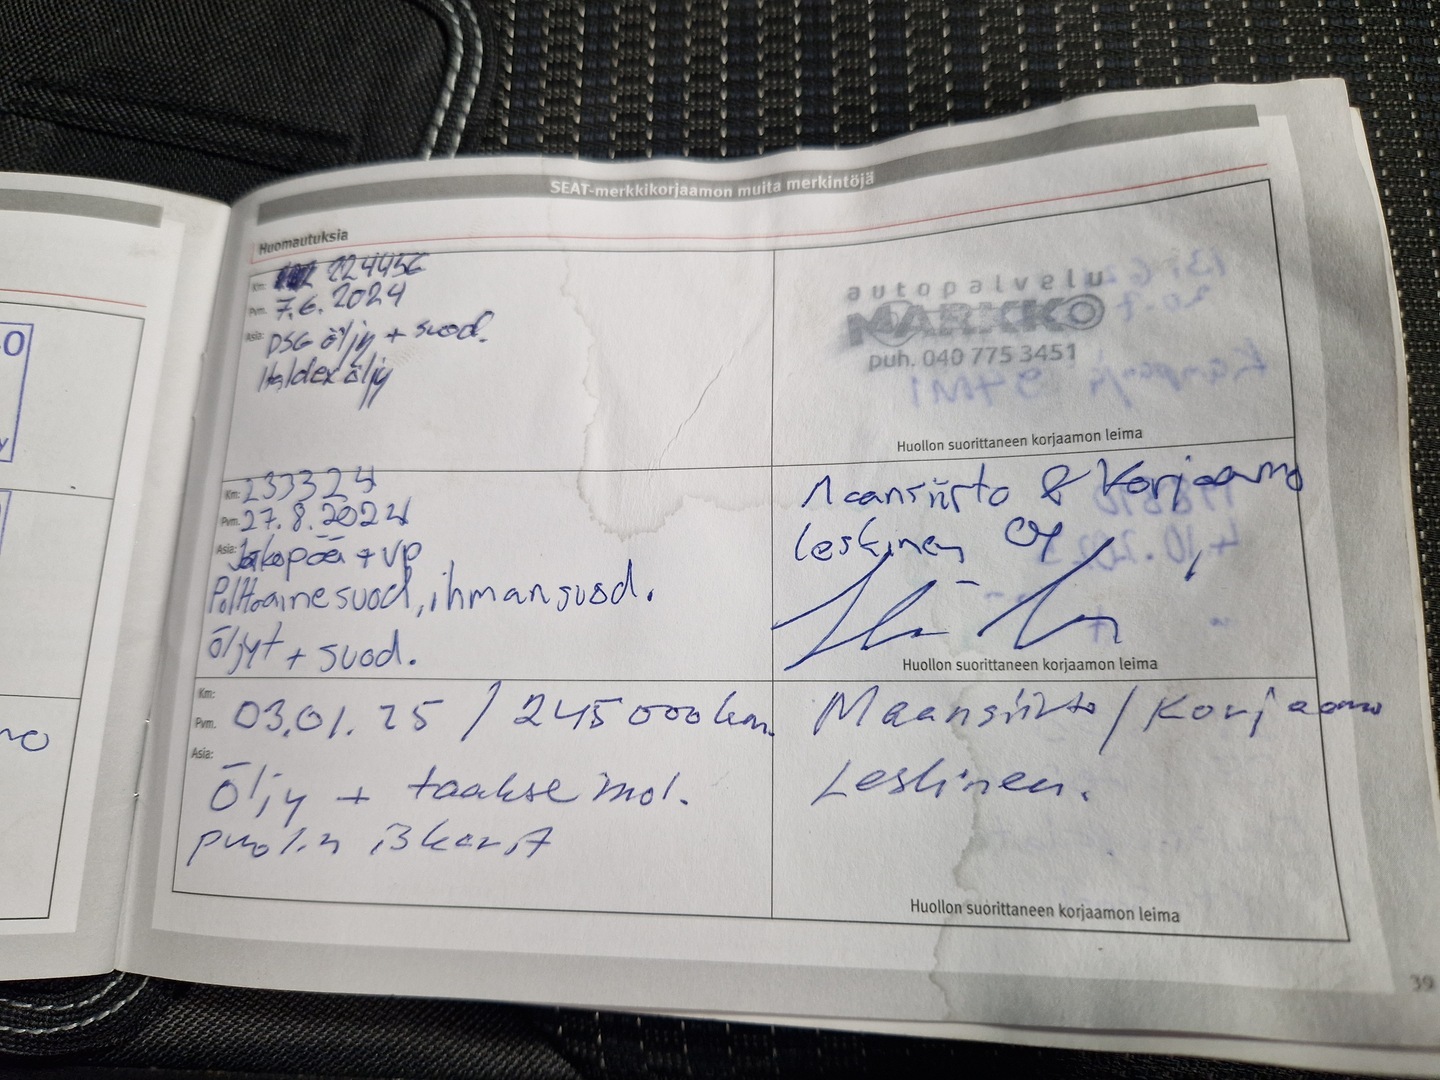 SEAT-merkkikorjaamon muita merkintöjä
Huomautuksia
Km: 224456
Pvm. 7.6.2024
Asia: DSG öljy + suod.
Haldex öljy
autopalvelu
MARKKO
puh. 040 775 3451
Huollon suorittaneen korjaamon leima
Km: 233324
Pvm. 27.8.2024
Asia: Jakopää + VP
Polttoainesuod, ilmansuod.
öljyt + suod.
Maansiirto & Korjaamo
Leskinen Oy
Huollon suorittaneen korjaamon leima
Km:
Pvm. 03.01.25 / 245000km
Asia:
Öljy + taakse mol.
puolin iskarit
Maansiirto / Korjaamo
Leskinen.
Huollon suorittaneen korjaamon leima
39